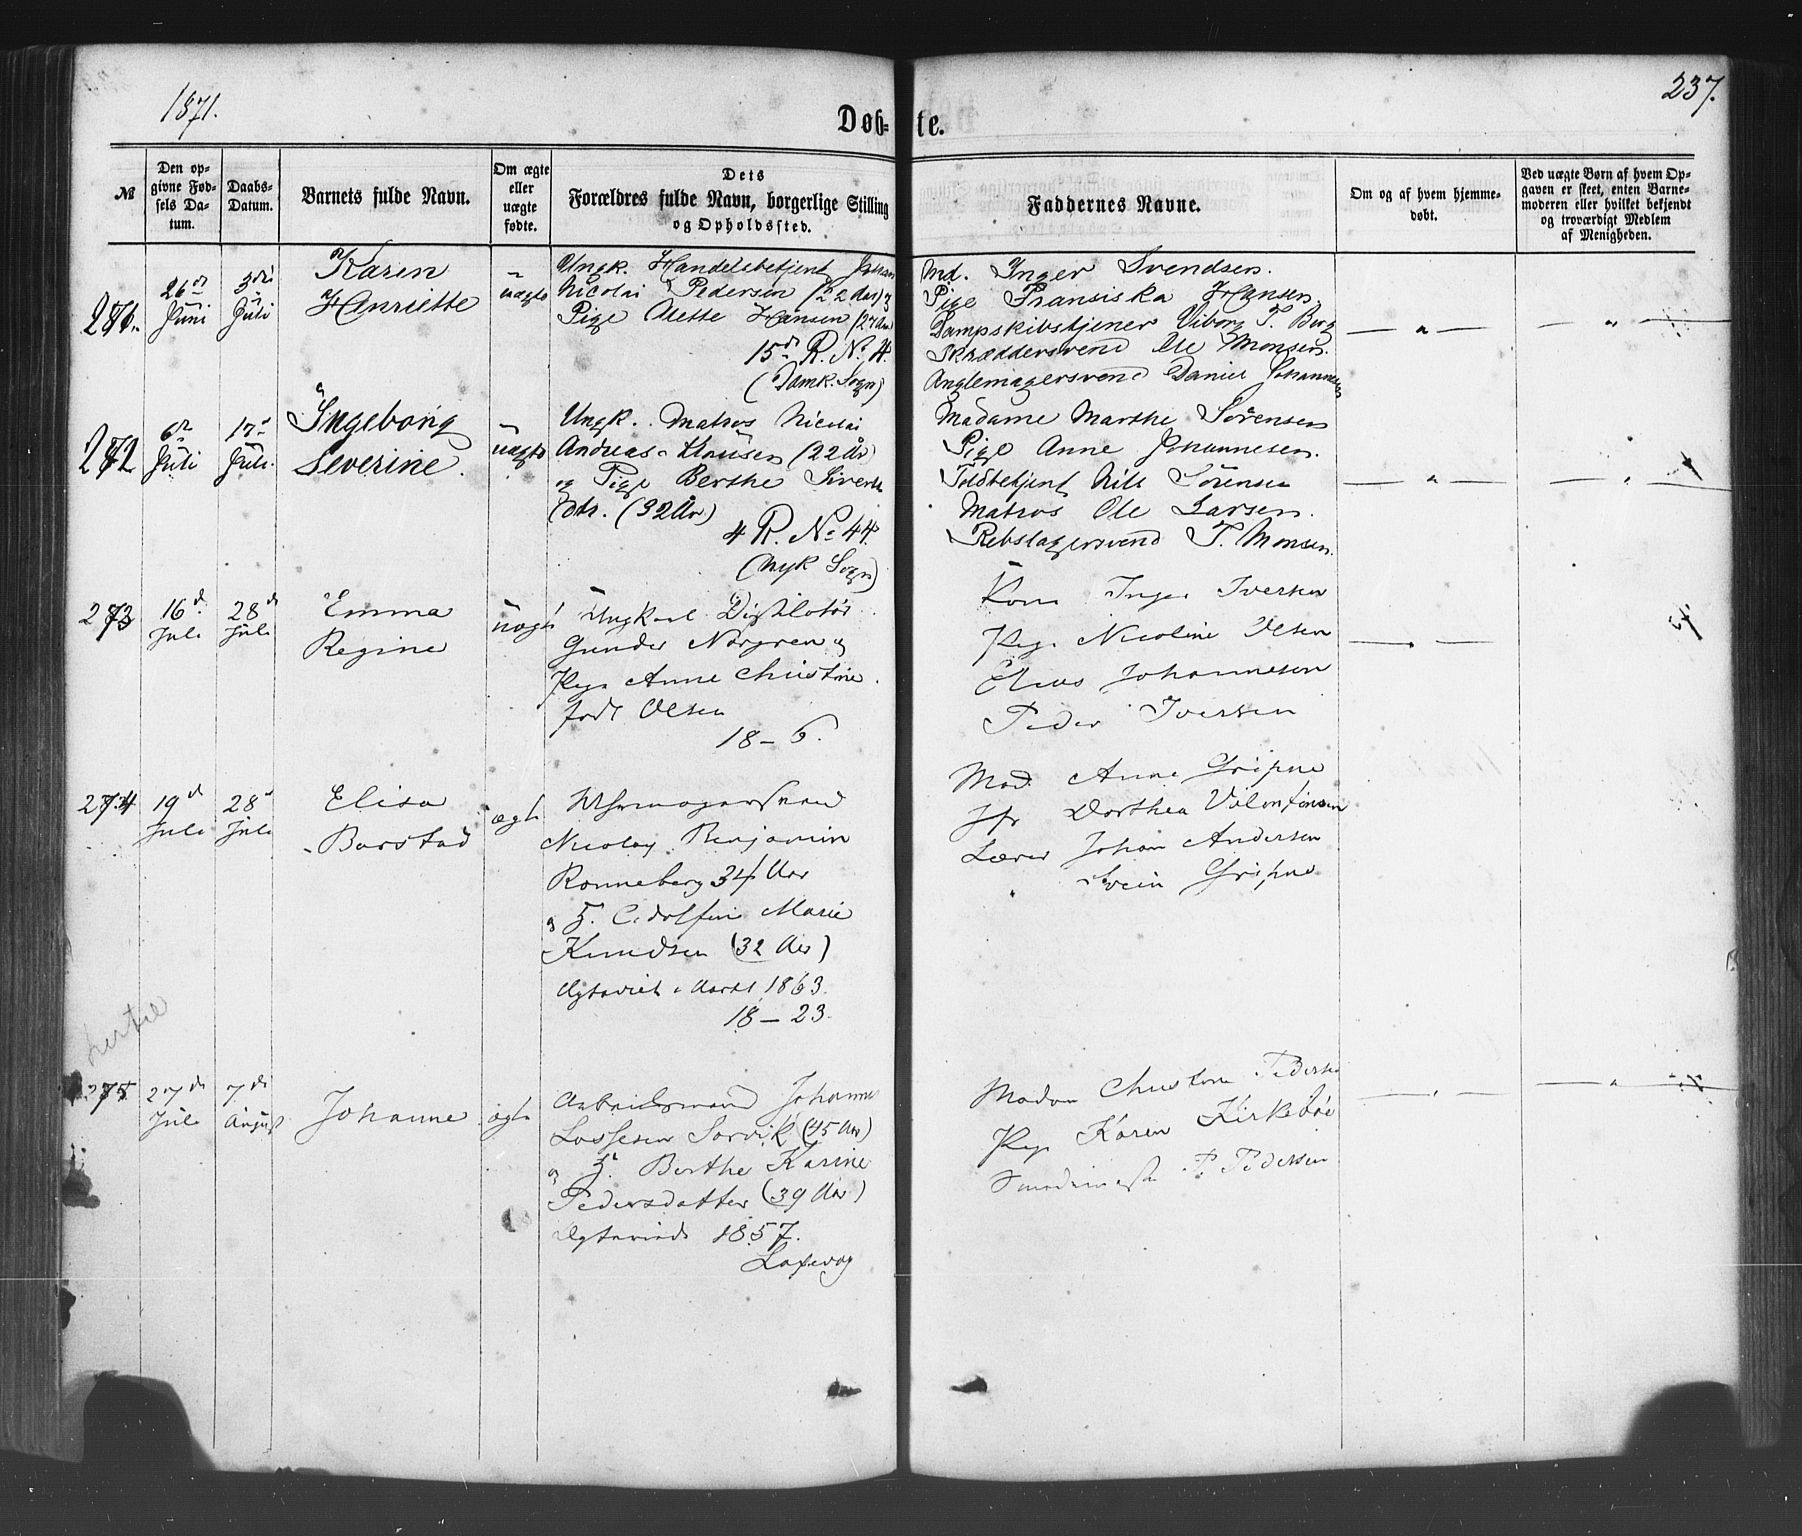 1871.
237.
Døb=te.
№
Den opgivne Fødsels Datum.
Daabs-Datum.
Barnets fulde Navn.
Om ægte eller uægte fødte.
Dets Forældres fulde Navn, borgerlige Stilling og Opholdssted.
Faddernes Navne.
Om og af hvem hjemmedøbt.
Ved uægte Børn af hvem Opgaven er skeet, enten Barnemoderen eller hvilket bekjendt og troværdigt Medlem af Menigheden.
271.
26d Juni
3die Juli
Karen
Henriette
uægte
Ungk. Handelsbetjent Johan
Nicolai Pedersen (22 Aar) og
Pige Anette Hansen (27 Aar)
15d R. No 4.
(Domk. Sogn)
Md. Inger Svendsen.
Pige Fransiska Hansen
Dampskibstjener Viborg T. Berg
Skræddersvend Ole Monsen.
Daniel Johannesen
272
6te Juli
17de Juli.
Ingeborg
Severine.
uægte
Ungk. Matros Nicolai
Andreas Klausen (22 År)
og Pige Berthe Sivert
Dtr. (32 Aar)
4 R. No 44.
(Nyk Sogn)
Madame Marthe Sørensen
Pige Anne Johannesen.
Toldbetjent Nils Sörensen
Matros Ole Larsen.
Rebslagersvend T. Monsen.
273
16d. Juli
28de Juli
Emma
Regine
uægte
Ungkarl Distilatör
Gunder Norgren og
Pige Anne Christine
født Olsen
18 - 6.
Kone Inger Iversen
Pige Nicoline Olsen
Elias Johannesen
Peder Iversen
274
19d Juli
28d Juli
Elisa
Borstad
ægte
Uhrmagersvend
Nicolay Benjamin
Ronneberg 34 Aar
og H. Adolfine Marie
Knudsen (32 Aar)
Ægteviet 1863.
18 - 23.
Mad. Anne Gripne
Jfr Dorthea Valentinsen
Lærer Johan Andersen
Svein Gripne
275
27de Juli
7de August
Johanne
ægte
Arbeidsmand Johannes
Lassesen Sorvik (45 Aar)
og H. Berthe Karine
Pedersdatter (39 Aar)
Ægteviede 1857.
Laxevog
Madam Christine Pedersen
Pige Karen Kirkebøe
P. Pedersen